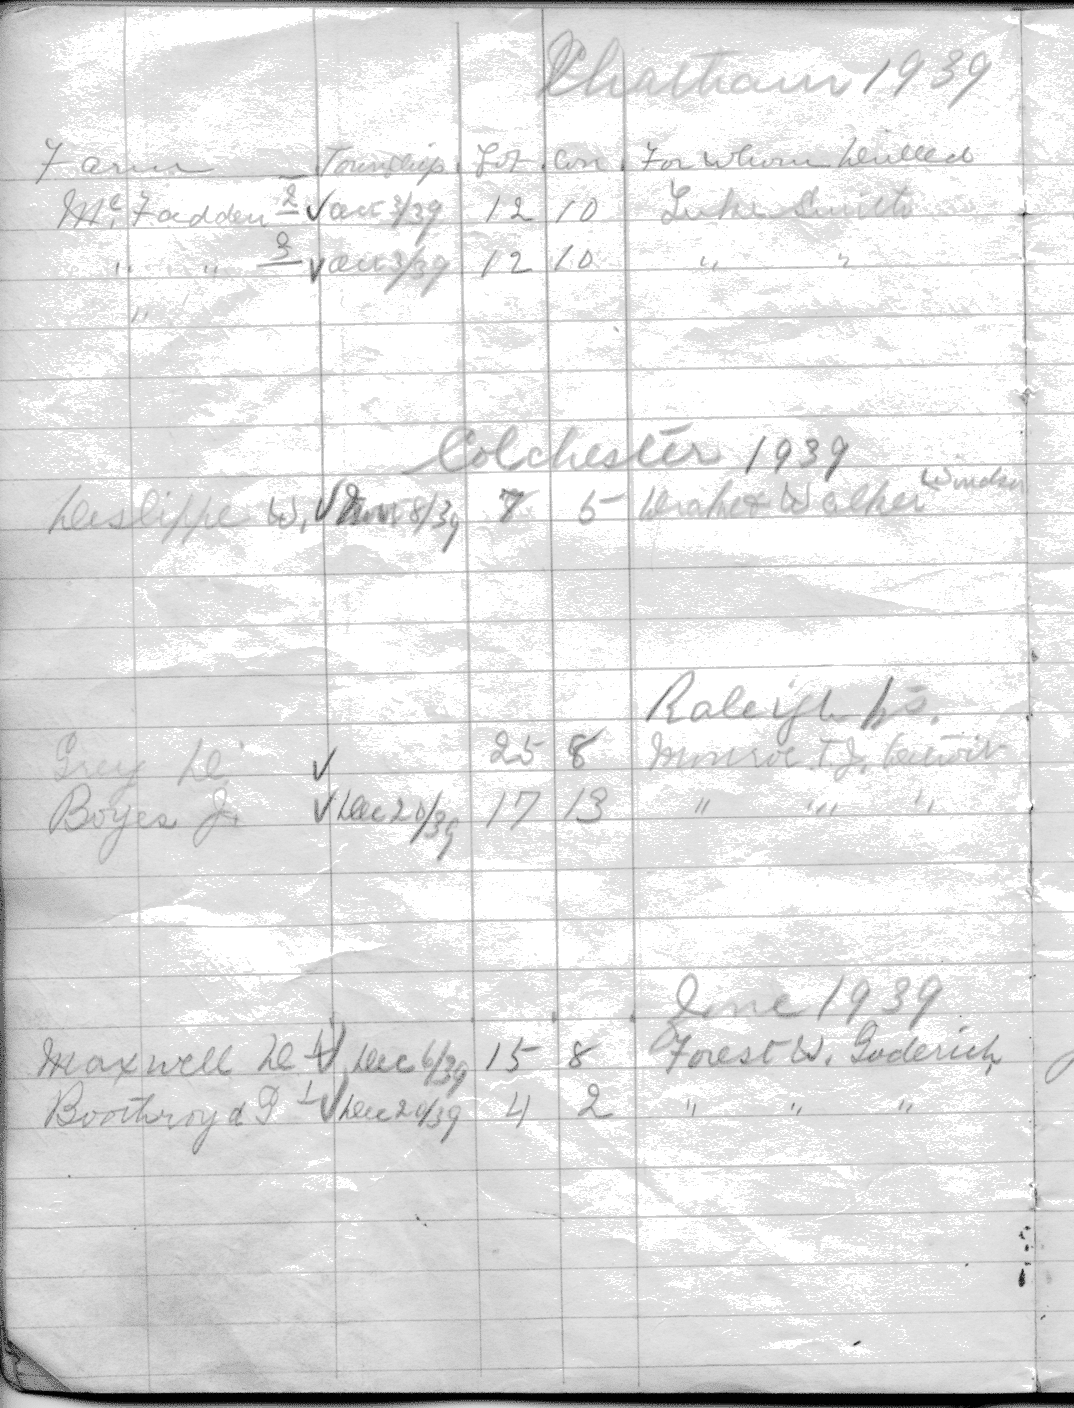 Chatham 1939
Farm Township Lot Con For Whom Drilled
Mc Fadden 2 ✓ Oct 3/39 12 10 Luke Smith
" " 3 ✓ Oct 3/39 12 10 " "
"
Colchester 1939
Deslippe W. ✓ 8/39 7 5 Drake & Walker Windsor
Raleigh
Grey D. ✓ 25 8 Munroe T. J. Detroit
Boyes J. ✓ Dec 20/39 17 13 " " "
1939
Maxwell D ✓ Dec 6/39 15 8 Forest W. Goderich
Boothroyd G 1 ✓ Dec 20/39 4 2 " " "